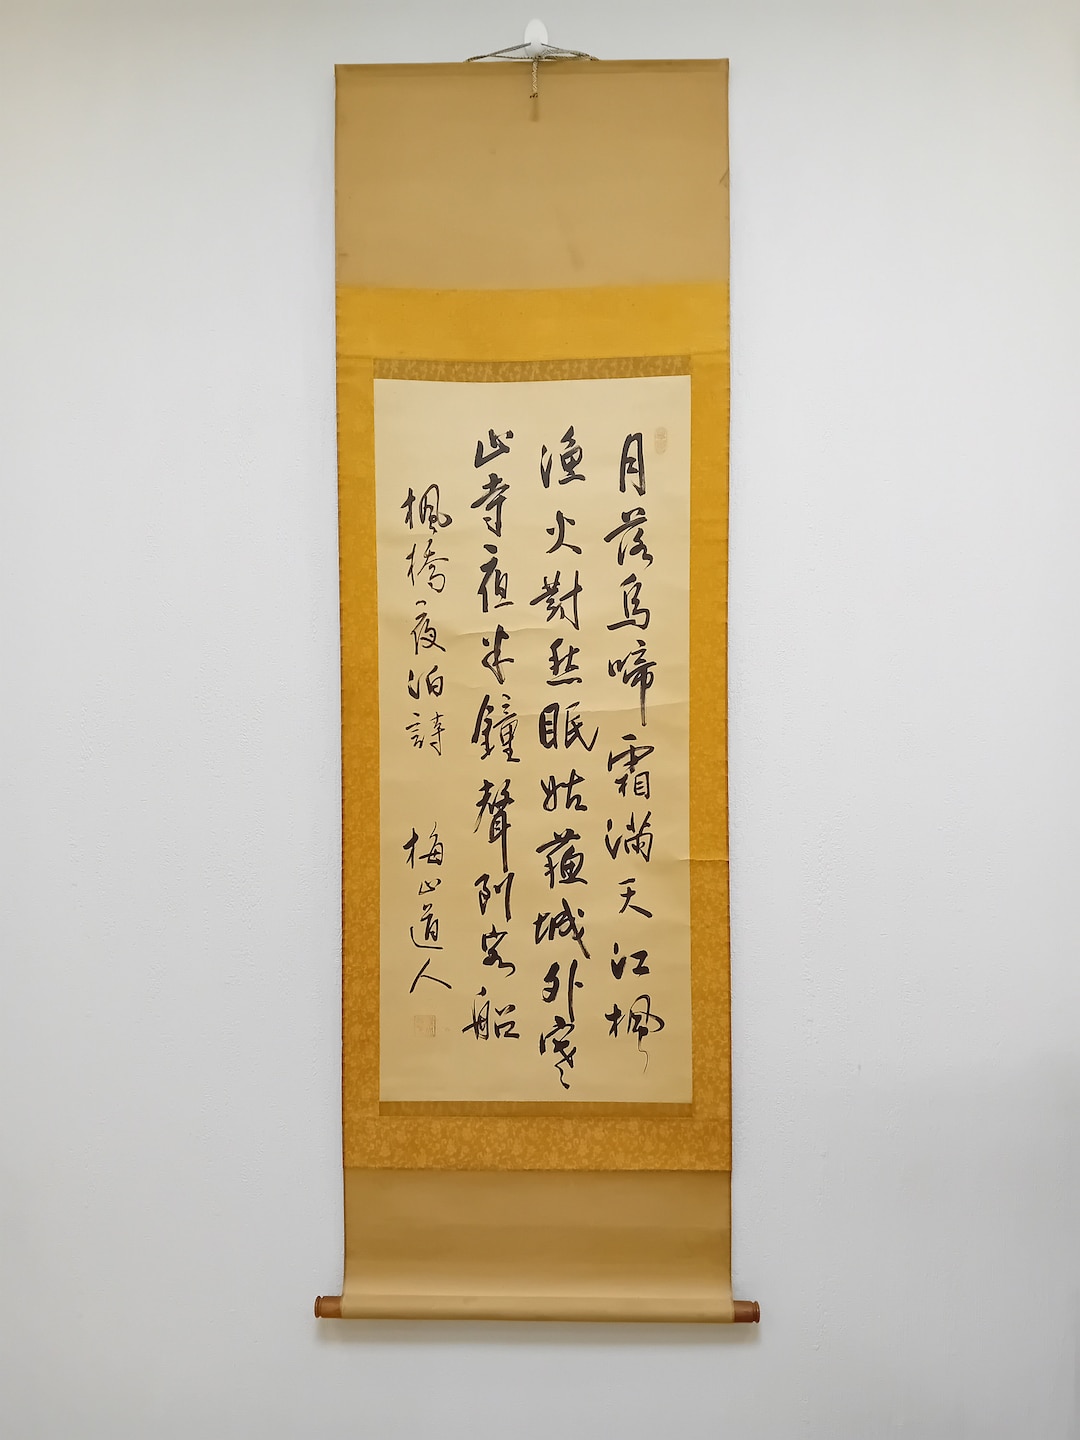 月落烏啼霜満天江楓
漁火對愁眠姑蘇城外寒
山寺夜半鐘聲到客船
楓橋夜泊詩 梅山道人